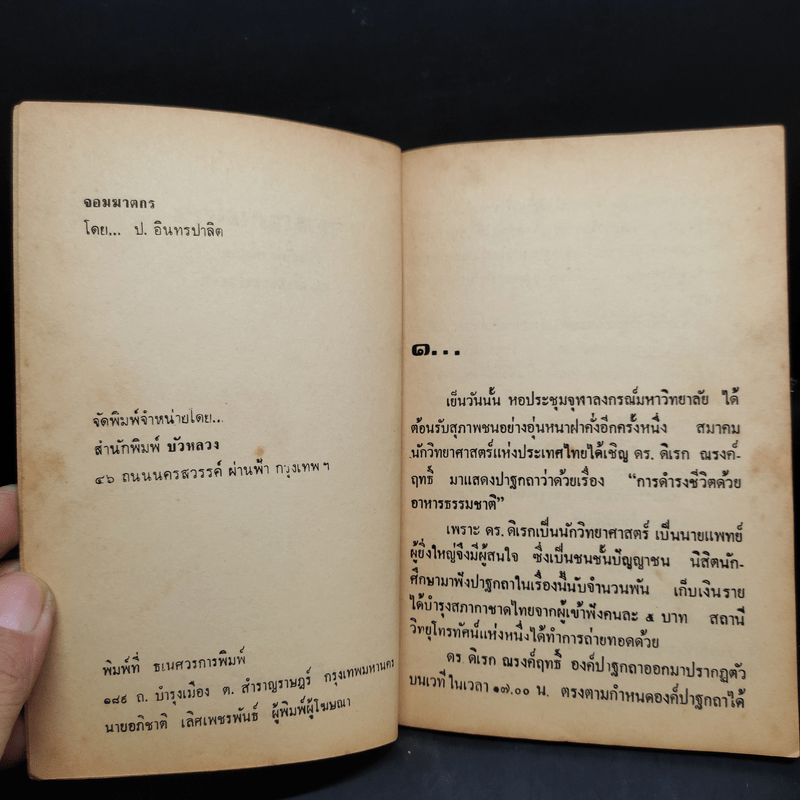 จอมฆาตกร
โดย... ป. อินทรปาลิต
จัดพิมพ์จำหน่ายโดย...
สำนักพิมพ์ บัวหลวง
๔๖ ถนนนครสวรรค์ ผ่านฟ้า กรุงเทพ ฯ
พิมพ์ที่ ธเนศวรการพิมพ์
๑๘๙ ถ. บำรุงเมือง ต. สำราญราษฎร์ กรุงเทพมหานคร
นายอภิชาติ เลิศเพชรพันธ์ ผู้พิมพ์ผู้โฆษณา
๑...
เย็นวันนั้น หอประชุมจุฬาลงกรณ์มหาวิทยาลัย ได้
ต้อนรับสุภาพชนอย่างอุ่นหนาฝาคั่งอีกครั้งหนึ่ง สมาคม
นักวิทยาศาสตร์แห่งประเทศไทยได้เชิญ ดร. ดิเรก ณรงค์-
ฤทธิ์ มาแสดงปาฐกถาว่าด้วยเรื่อง “การดำรงชีวิตด้วย
อาหารธรรมชาติ”
เพราะ ดร. ดิเรกเป็นนักวิทยาศาสตร์ เป็นนายแพทย์
ผู้ยิ่งใหญ่จึงมีผู้สนใจ ซึ่งเป็นชนชั้นปัญญาชน นิสิตนัก-
ศึกษามาฟังปาฐกถาในเรื่องนี้นับจำนวนพัน เก็บเงินราย
ได้บำรุงสภากาชาดไทยจากผู้เข้าฟังคนละ ๕ บาท สถานี
วิทยุโทรทัศน์แห่งหนึ่งได้ทำการถ่ายทอดด้วย
ดร. ดิเรก ณรงค์ฤทธิ์ องค์ปาฐกถาออกมาปรากฏตัว
บนเวที ในเวลา ๑๗.๐๐ น. ตรงตามกำหนดองค์ปาฐกถาได้